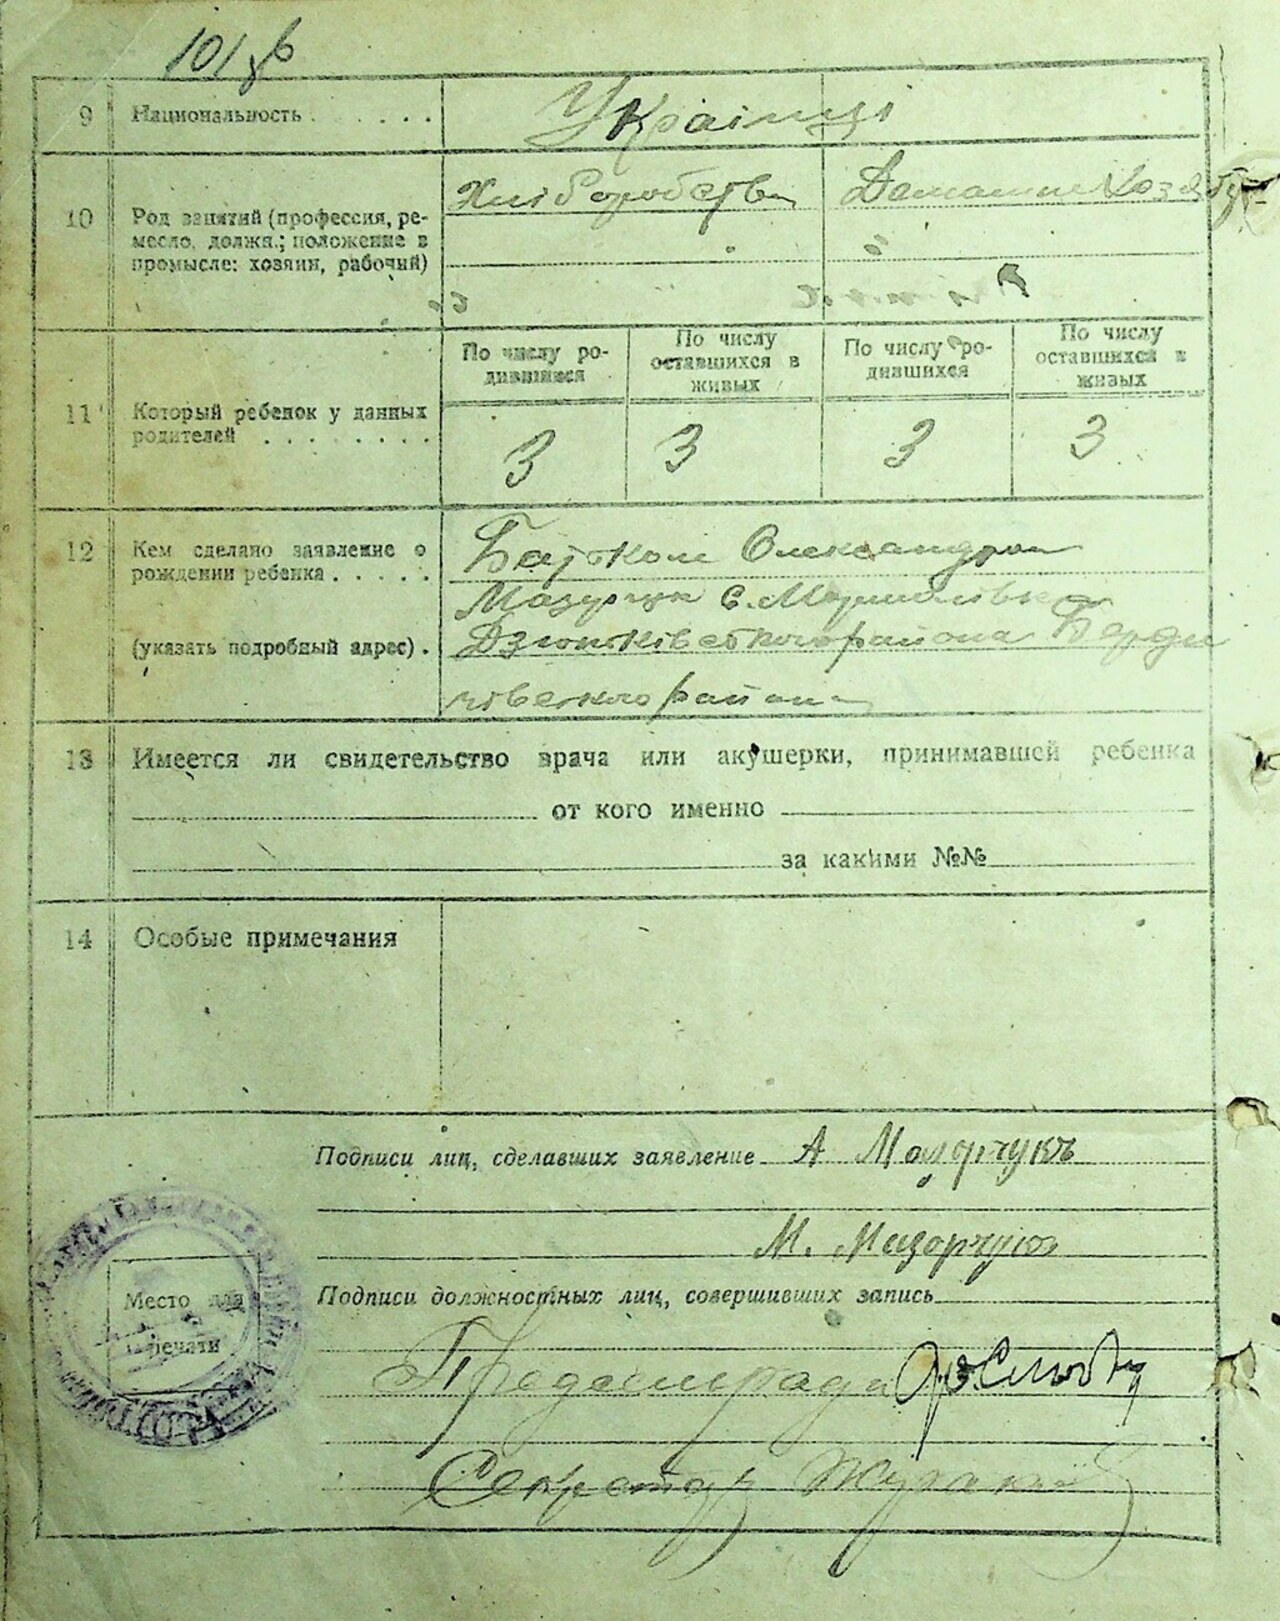 101 зв
9 Национальность Українці
10 Род занятий (профессия, ре-
месло, должн.; положение в
промысле: хозяин, рабочий)
Хліборобство
Домашне
11 Который ребенок у данных
родителей
По числу ро-
дившихся
По числу
оставшихся в
живых
По числу ро-
дившихся
По числу
оставшихся в
живых
3 3 3 3
12 Кем сделано заявление о
рождении ребенка
(указать подробный адрес).
Батьком Олександром
Мазурчук с.
Дзюньківського района Берди
чівського района
13 Имеется ли свидетельство врача или акушерки, принимавшей ребенка
от кого именно
за какими №№
14 Особые примечания
Подписи лиц, сделавших заявление А Мазурчукъ
М. Мазорчукъ
Место для
печати
Подписи должностных лиц, совершивших запись
Предсільради
Секретар